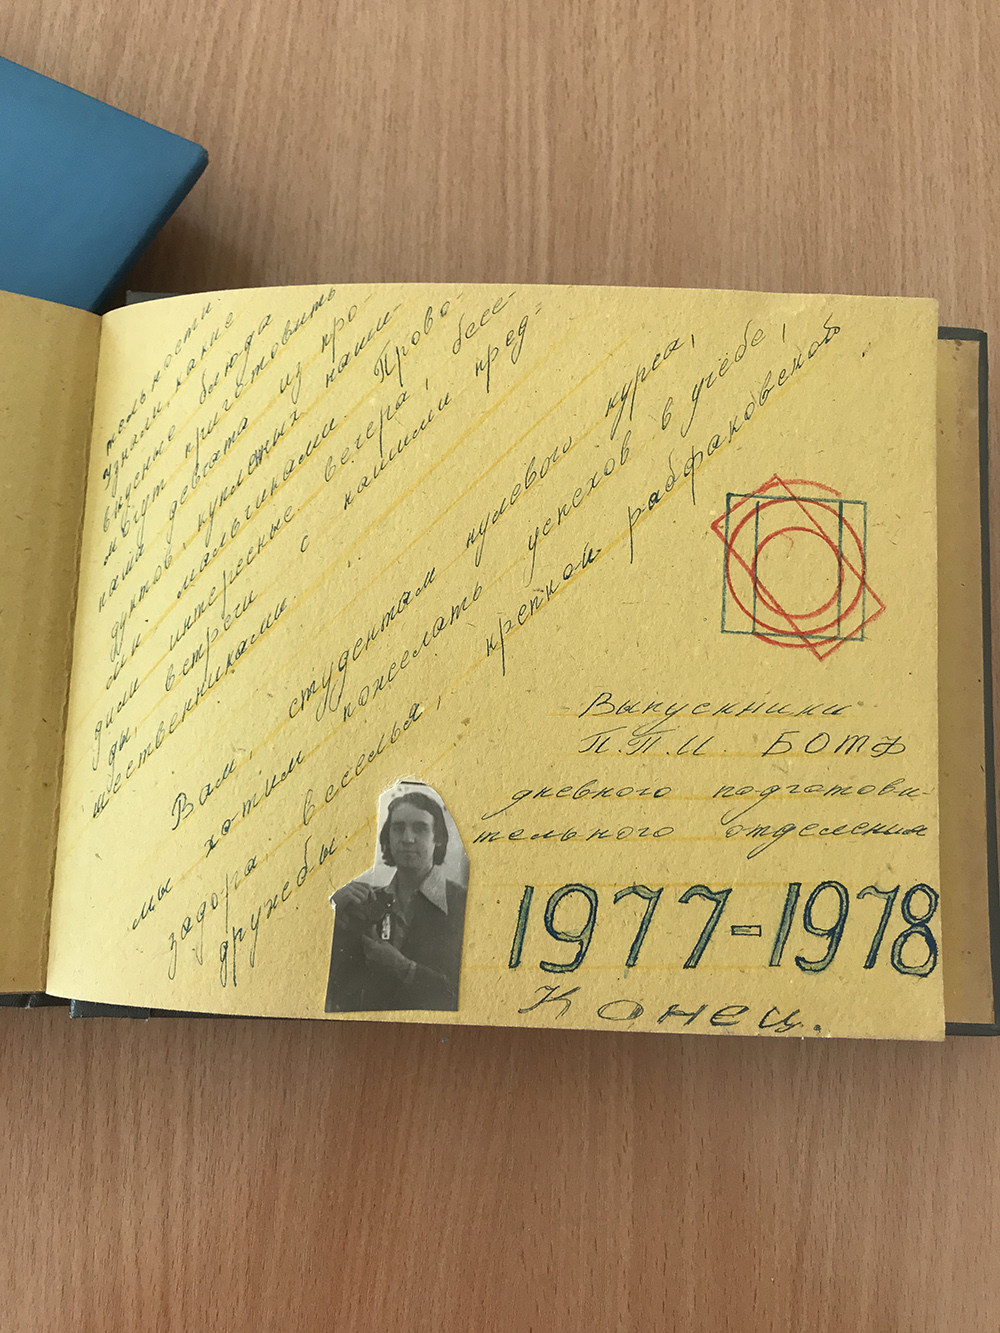 тельности.
узнали, какие
вкусные блюда
могут приготовить
наши девчата из про-
дуктов, купленных наши-
ми мальчиками. Прово-
дили интересные вечера, бесе-
ды, встречи с нашими пред-
шественниками.
Вам, студентам нулевого курса,
мы хотим пожелать успехов в учёбе,
задора, веселья, крепкой рабфаковской
дружбы.
Выпускники
П.П.И. БОТФ
дневного подготови-
тельного отделения
1977-1978
Конец.